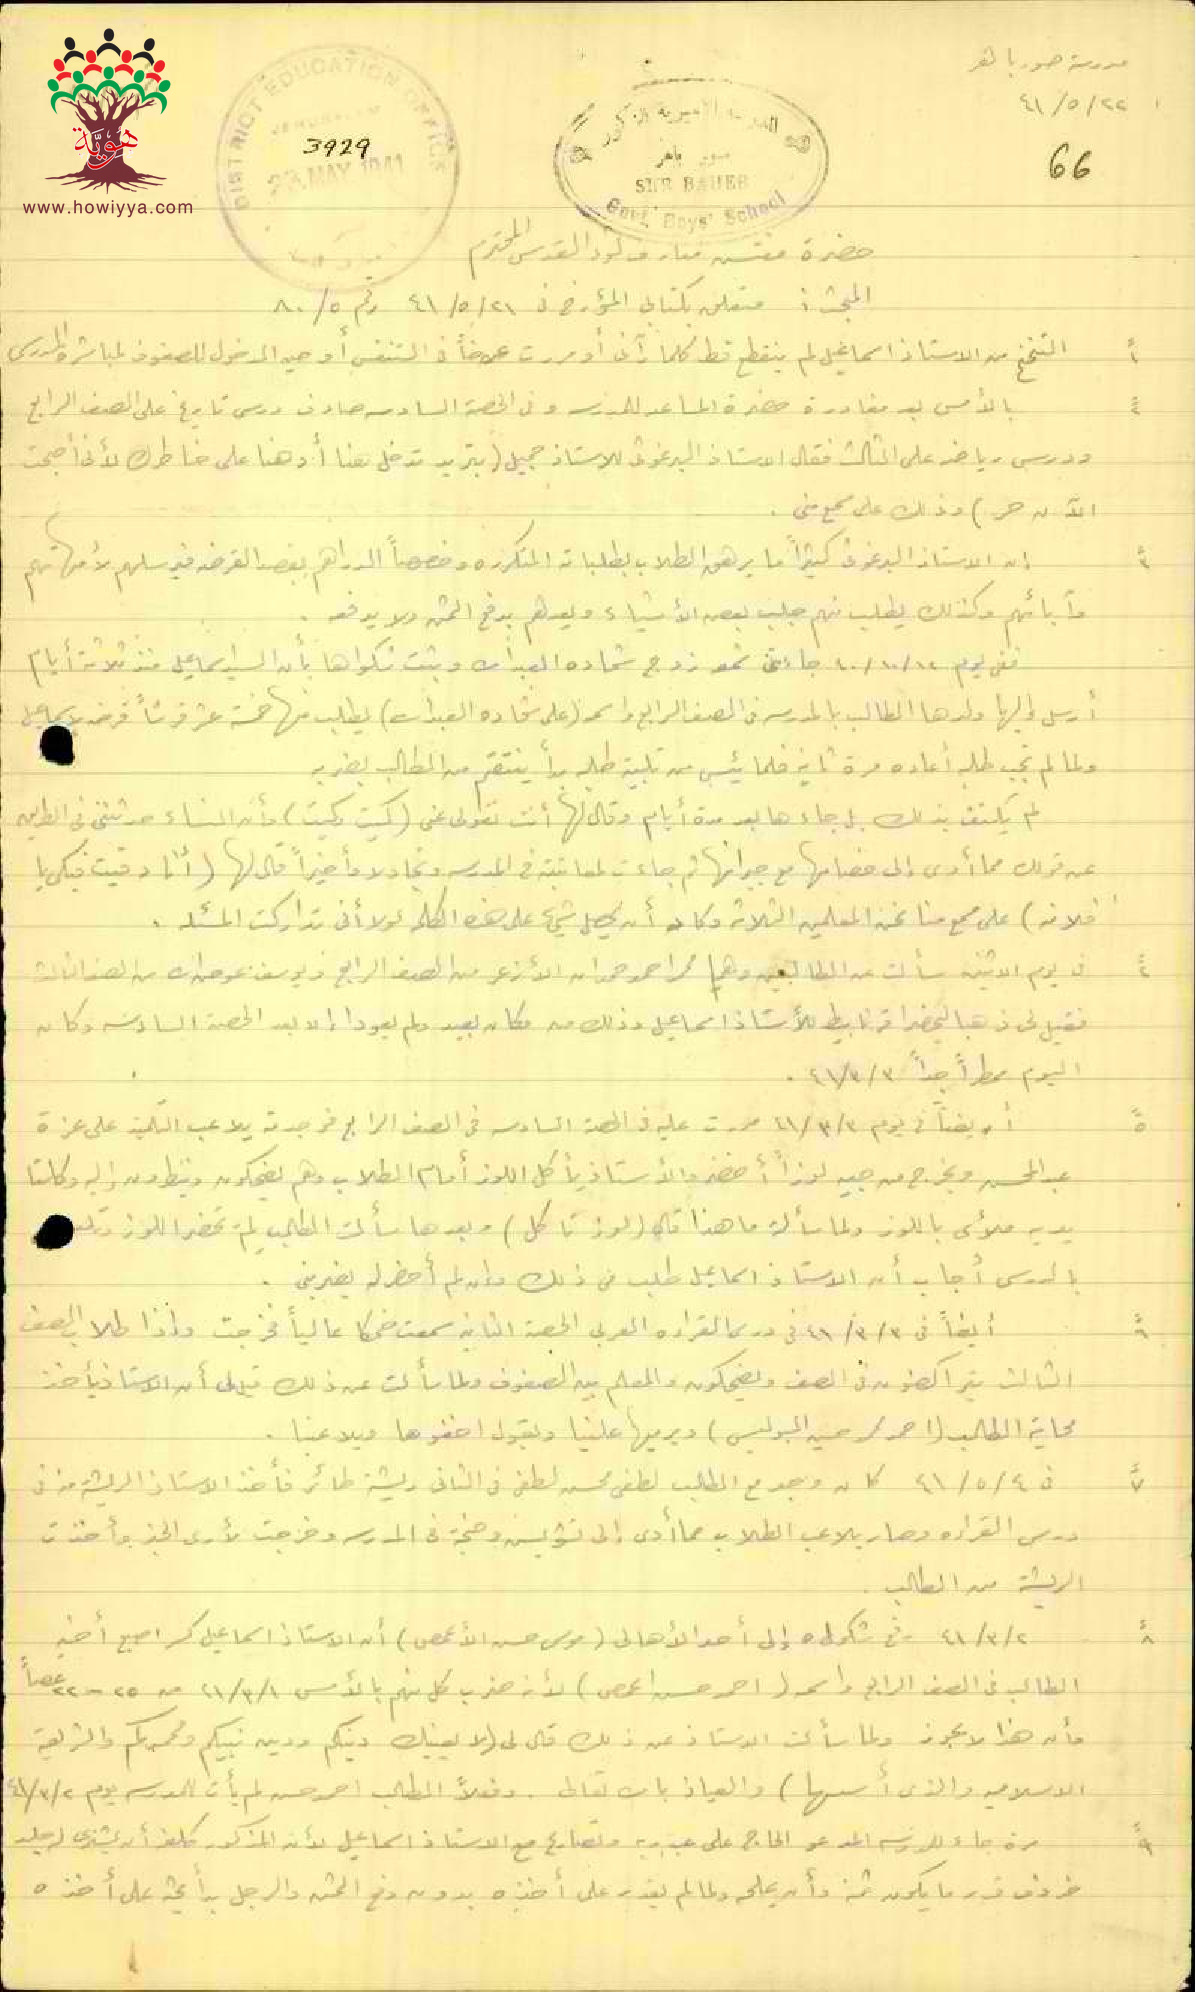 مدرسة صور باهر
٤١/٥/٢٢
66
DISTRICT EDUCATION OFFICE
JERUSALEM
3929
23 MAY 1941
المدرسة الأميرية للذكور
صور باهر
SUR BAHER
Govt. Boys' School
هوية
www.howiyya.com
حضرة مفتش معارف لواء القدس المحترم
المبحث: متعلق بكتابي المؤرخ في ٤١/٥/٢١ رقم ٨٠/٥
١ من الاستاذ اسماعيل لم ينقطع قط كلما رآني أو مررت في التنفس أو حين الدخول للصفوف لمباشرة الدرس
٢ بالأمس بعد مغادرة حضرة المساعد للمدرسه وفي الحصة السادسه صادف درس تاريخ على الصف الرابع
ودرس رياضه على الثالث فقال الاستاذ البرغوثي للاستاذ جميل (بتريد تدخل هنا أو هنا على خاطرك لأني أصبحت
الآن حر) وذلك على سمع مني.
٣ إن الاستاذ البرغوثي كثيراً ما يرهق الطلاب بطلباته المتكرره وخصوصاً الدراهم بقصد القرض فيرسلهم لأمهاتهم
وآبائهم وكذلك يطلب منهم جلب بعض الأشياء ويعدهم بدفع الثمن ولا يدفع.
ففي يوم ٤٠/١٠/١٢ جاءتني زوج شحاده العبدات وبثت شكواها بأن السيد اسماعيل منذ ثلاثة أيام
أرسل إليها ولدها الطالب بالمدرسه في الصف الرابع واسمه (علي شحاده العبدات) يطلب منها خمسة عشر قرشاً قرضه لاسماعيل
ولما لم تجب طلبه أعاده مرة ثانيه فلما يئس من تلبية طلبه بدأ ينتقم من الطالب بضربه
لم يكتف بذلك بل جاءها بعد مدة أيام وقال لها أنت تقولي عني (كيت وكيت) وأن النساء حدثنني في الطريق
عن قولك مما أدى إلى خصامها مع جيرانها ثم جاءت لمعاتبته في المدرسه وتجادلا وأخيراً قال لها (أنا وقعت فيكي يا
فلانه) على سمع منا نحن المعلمين الثلاثه وكاد أن يحصل شيئ على هذه الكلمه لولا أني تداركت المسئله.
٤ في يوم الاثنين سألت عن الطالبين وهما محمد احمد حمدان الأزعر من الصف الرابع و يوسف من الصف الثالث
فقيل لي ذهبا ليحضرا قرنابيط للأستاذ اسماعيل وذلك من مكان بعيد ولم يعودا إلا بعد الحصة السادسه وكان
اليوم ممطراً جداً ٤١/٣/٣.
٥ أيضاً في يوم ٤١/٣/٣ مررت عليه في الحصة السادسه في الصف الرابع فوجدته يلاعب التلميذ علي عزة
عبد المحسن ويخرج من جيبه لوزاً أخضر والأستاذ يأكل اللوز أمام الطلاب وهم يضحكون وينظرون إليه وكلتا
يديه ملأى باللوز ولما سألته ما هذا قال (لوز تا كل) وبعدها سألت الطالب لم تحضر اللوز
بالدرس أجاب أن الاستاذ اسماعيل طلب مني ذلك وإن لم أحضر له يضربني.
٦ أيضاً في ٤١/٣/٣ في درس القراءه العربي الحصة الثانيه سمعت ضحكا عالياً فخرجت وإذا طلاب الصف
الثالث يتراكضون في الصف ويضحكون والمعلم بين الصفوف ولما سألت عن ذلك قيل لي أن الاستاذ يأخذ
محاية الطالب (احمد محمد حسين ) ويرميها علينا ويقول اخفوها ويلاعبنا.
٧ في ٤١/٥/٤ كان وجد مع الطالب لطفي محسن لطفي في الثاني ريشة طائر فأخذ الاستاذ الريشة منه في
درس القراءه وصار يلاعب الطلاب مما أدى إلى تشويش وضجة في المدرسه وخرجت لأرى الخبر وأخذت
الريشة من الطالب.
٨ ٤١/٣/٢ رفع شكواه إلي أحد الأهالي (موسى حسن الأعمص) أن الاستاذ اسماعيل كسر اصبع أخيه
الطالب في الصف الرابع واسمه (احمد حسن اعمص) لأنه ضرب كل منهم بالأمس ٤١/٣/١ من ٢٥ - ٢٢ عصاً
وأن هذا لا يجوز ولما سألت الاستاذ عن ذلك قال لي (لا يعنيك دينكم ودين نبيكم ومحمدكم والشريعة
الاسلاميه والذي أسسها) والعياذ بالله تعالى. وفعلاً الطالب احمد حسن لم يأت للمدرسه يوم ٤١/٣/٢
٩ مرة جاء للمدرسه المدعو الحاج علي وتصايح مع الاستاذ اسماعيل لأن المذكور كلفه أن يشتري له جلد
خروف قدر ما يكون ثمنه وأن يملحه ولما لم يقدر على أخذه بدون دفع الثمن والرجل بدأ يحثه على أخذه